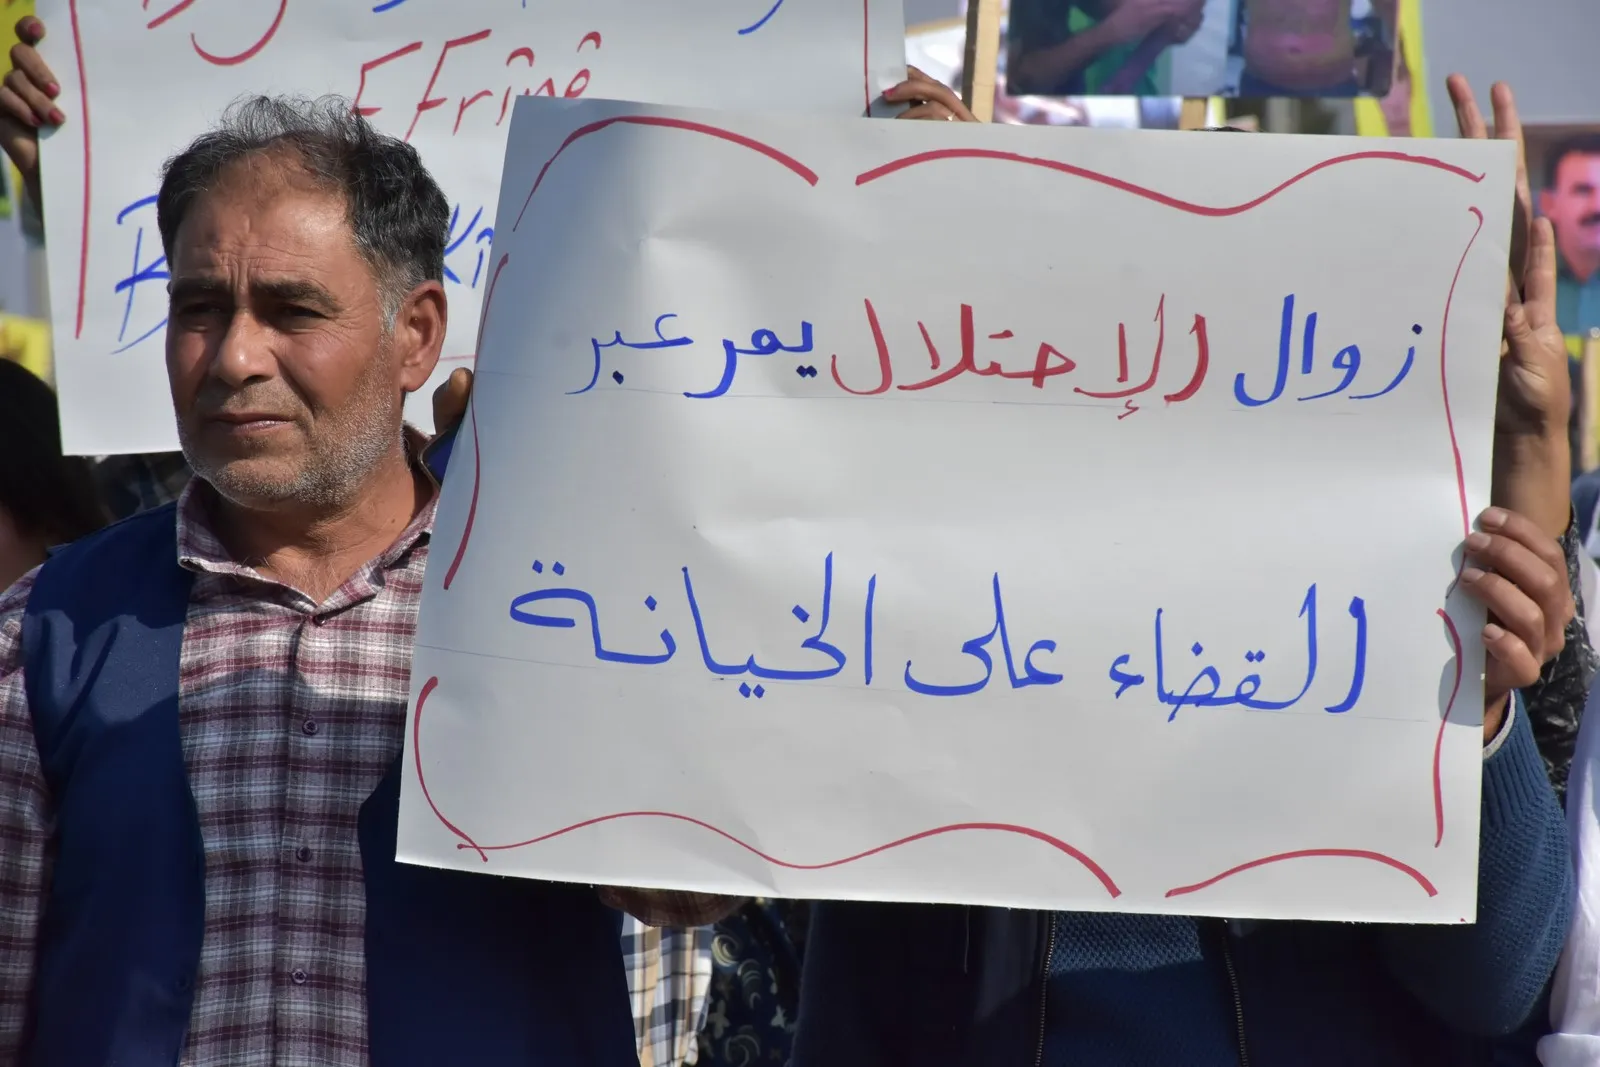 Efrînê
زوال الإحتلال يمر عبر
القضاء على الخيانة